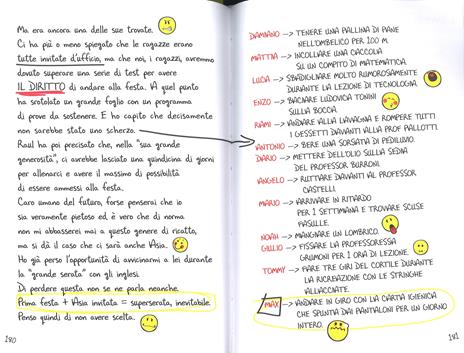 Ma era ancora una delle sue trovate.
Ci ha più o meno spiegato che le ragazze erano
tutte invitate d'ufficio, ma che noi, i ragazzi, avremmo
dovuto superare una serie di test per avere
IL DIRITTO di andare alla festa. A quel punto
ha srotolato un grande foglio con un programma
di prove da sostenere. E ho capito che decisamente
non sarebbe stato uno scherzo.
Raul ha poi precisato che, nella "sua grande
generosità", ci avrebbe lasciato una quindicina di giorni
per allenarci e avere il massimo di possibilità
di essere ammessi alla festa.
Caro umano del futuro, forse penserai che io
sia veramente pietoso ed è vero che di norma
non mi abbasserei mai a questo genere di ricatto,
ma si dà il caso che ci sarà anche Asia.
Ho già perso l'opportunità di avvicinarmi a lei durante
la "grande serata" con gli inglesi.
Di perdere questa non se ne parla neanche.
Prima festa + Asia invitata = superserata, inevitabile.
Penso quindi di non avere scelta.
180
DAMIANO --> TENERE UNA PALLINA DI PANE
NELL'OMBELICO PER 100 M.
MATTIA --> INCOLLARE UNA CACCOLA
SU UN COMPITO DI MATEMATICA.
LUCA --> SBADIGLIARE MOLTO RUMOROSAMENTE
DURANTE LA LEZIONE DI TECNOLOGIA.
ENZO --> BACIARE LUDOVICA TONINI
SULLA BOCCA.
RAMI --> ANDARE ALLA LAVAGNA E ROMPERE TUTTI
I GESSETTI DAVANTI ALLA PROF PALLOTTI.
ANTONIO --> BERE UNA SORSATA DI PEDILUVIO.
DARIO --> METTERE DELL'OLIO SULLA SEDIA
DEL PROFESSOR BURRONI.
ANGELO --> RUTTARE DAVANTI AL PROFESSOR
CASTELLI.
MARIO --> ARRIVARE IN RITARDO
PER 1 SETTIMANA E TROVARE SCUSE
FASULLE.
NOAH --> MANGIARE UN LOMBRICO.
GIULIO --> FISSARE LA PROFESSORESSA
GRUMONI PER 1 ORA DI LEZIONE.
TOMMY --> FARE TRE GIRI DEL CORTILE DURANTE
LA RICREAZIONE CON LE STRINGHE
ALLACCIATE.
MAX --> ANDARE IN GIRO CON LA CARTA IGIENICA
CHE SPUNTA DAI PANTALONI PER UN GIORNO
INTERO.
181